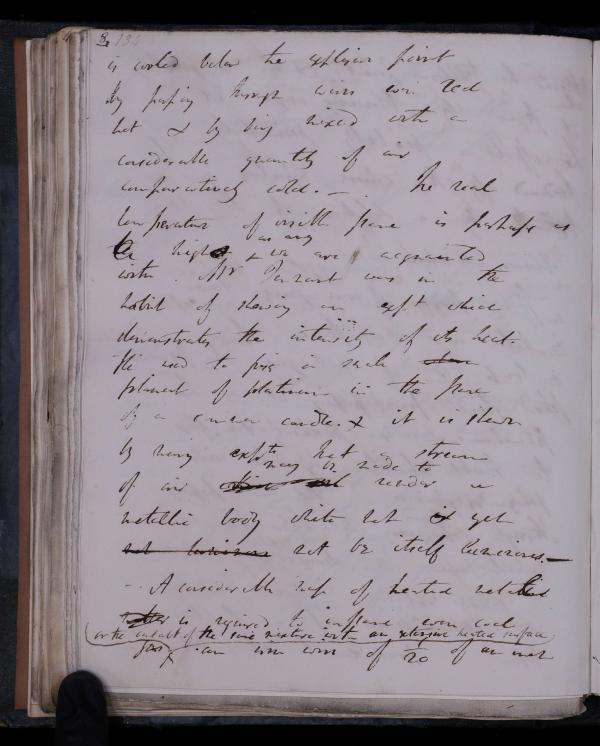 134
is cooled below the explosion point
by passing through wires even red
hot & by being mixed with a
considerable quantity of air
comparatively cold. — The real
temperature of visible flame is perhaps as
high as any we are acquainted
with. Mr Tennant was in the
habit of shewing an expt which
demonstrates the intensity of its heat.
He used to fuse a small
filament of platinum in the flame
of a common candle. & it is shewn
by many expts that a stream
of air may be made to render a
metallic body white hot & yet
not be itself luminous. —
— A considerable mass of heated metallic
is required to inflame even coal
(or the contact of the same mixture with an extensive heated surface)
gas, an iron wire of 1/20 of an inch